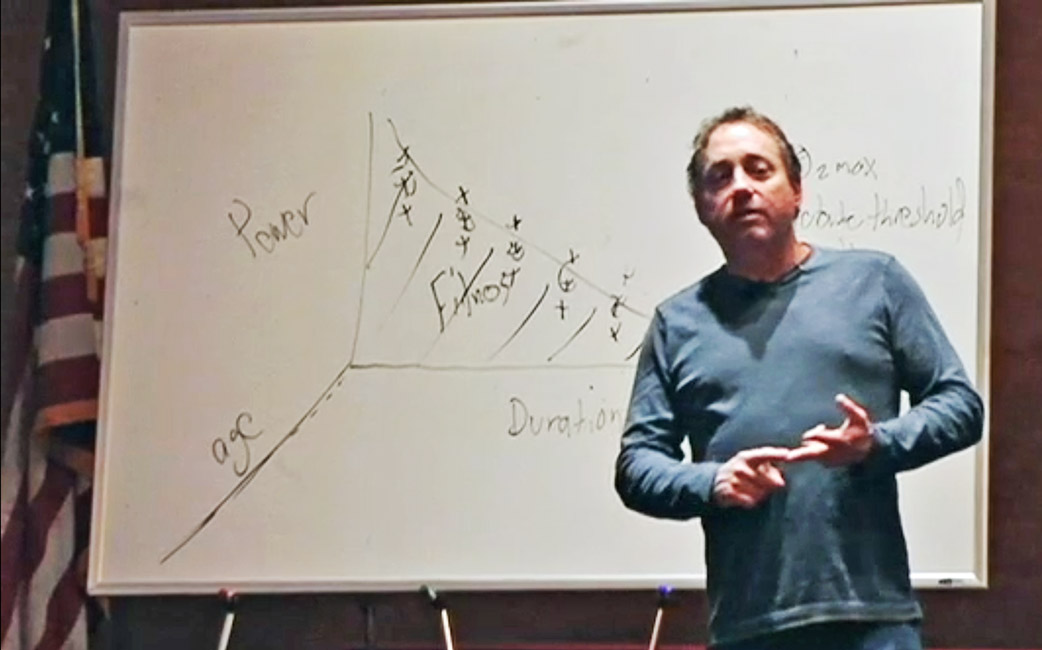 Power
Fitness
age
Duration
O2 max
threshold